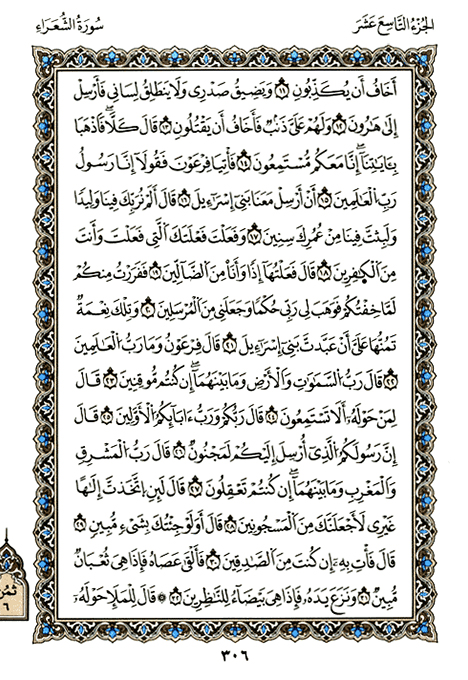 الجُزْءُ التَّاسِعَ عَشَرَ
سُورَةُ الشُّعَرَاءِ
أَخَافُ أَن يُكَذِّبُونِ ١٢ وَيَضِيقُ صَدْرِى وَلَا يَنطَلِقُ لِسَانِى فَأَرْسِلْ
إِلَىٰ هَٰرُونَ ١٣ وَلَهُمْ عَلَىَّ ذَنۢبٌ فَأَخَافُ أَن يَقْتُلُونِ ١٤ قَالَ كَلَّا فَٱذْهَبَا
بِـَٔايَٰتِنَآ إِنَّا مَعَكُم مُّسْتَمِعُونَ ١٥ فَأْتِيَا فِرْعَوْنَ فَقُولَآ إِنَّا رَسُولُ
رَبِّ ٱلْعَٰلَمِينَ ١٦ أَنْ أَرْسِلْ مَعَنَا بَنِىٓ إِسْرَٰٓءِيلَ ١٧ قَالَ أَلَمْ نُرَبِّكَ فِينَا وَلِيدًا
وَلَبِثْتَ فِينَا مِنْ عُمُرِكَ سِنِينَ ١٨ وَفَعَلْتَ فَعْلَتَكَ ٱلَّتِى فَعَلْتَ وَأَنتَ
مِنَ ٱلْكَٰفِرِينَ ١٩ قَالَ فَعَلْتُهَآ إِذًا وَأَنَا۠ مِنَ ٱلضَّآلِّينَ ٢٠ فَفَرَرْتُ مِنكُمْ
لَمَّا خِفْتُكُمْ فَوَهَبَ لِى رَبِّى حُكْمًا وَجَعَلَنِى مِنَ ٱلْمُرْسَلِينَ ٢١ وَتِلْكَ نِعْمَةٌ
تَمُنُّهَا عَلَىَّ أَنْ عَبَّدتَّ بَنِىٓ إِسْرَٰٓءِيلَ ٢٢ قَالَ فِرْعَوْنُ وَمَا رَبُّ ٱلْعَٰلَمِينَ
٢٣ قَالَ رَبُّ ٱلسَّمَٰوَٰتِ وَٱلْأَرْضِ وَمَا بَيْنَهُمَآ إِن كُنتُم مُّوقِنِينَ ٢٤ قَالَ
لِمَنْ حَوْلَهُۥٓ أَلَا تَسْتَمِعُونَ ٢٥ قَالَ رَبُّكُمْ وَرَبُّ ءَابَآئِكُمُ ٱلْأَوَّلِينَ ٢٦ قَالَ
إِنَّ رَسُولَكُمُ ٱلَّذِىٓ أُرْسِلَ إِلَيْكُمْ لَمَجْنُونٌ ٢٧ قَالَ رَبُّ ٱلْمَشْرِقِ
وَٱلْمَغْرِبِ وَمَا بَيْنَهُمَآ إِن كُنتُمْ تَعْقِلُونَ ٢٨ قَالَ لَئِنِ ٱتَّخَذْتَ إِلَٰهًا
غَيْرِى لَأَجْعَلَنَّكَ مِنَ ٱلْمَسْجُونِينَ ٢٩ قَالَ أَوَلَوْ جِئْتُكَ بِشَىْءٍ مُّبِينٍ ٣٠
قَالَ فَأْتِ بِهِۦٓ إِن كُنتَ مِنَ ٱلصَّٰدِقِينَ ٣١ فَأَلْقَىٰ عَصَاهُ فَإِذَا هِىَ ثُعْبَانٌ
مُّبِينٌ ٣٢ وَنَزَعَ يَدَهُۥ فَإِذَا هِىَ بَيْضَآءُ لِلنَّٰظِرِينَ ٣٣ قَالَ لِلْمَلَإِ حَوْلَهُۥٓ
ثُمُن
٦
٣٠٦